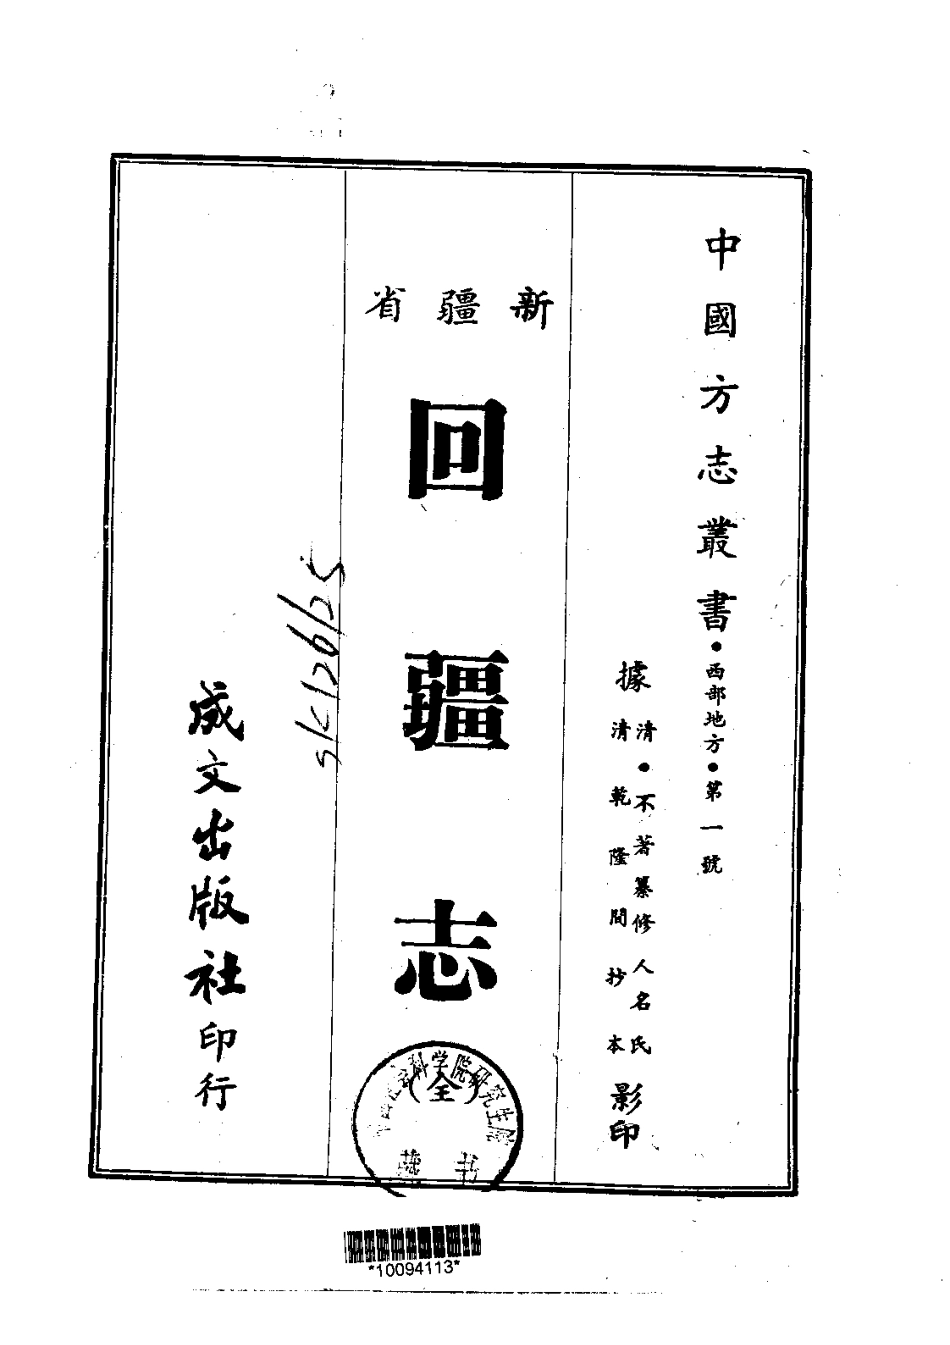 中國方志叢書•西部地方•第一號
據清•不著纂修人名氏
清乾隆間抄本影印
新疆省
回疆志
(全)
科学院研究生院
藏书
成文出版社印行
*10094113*